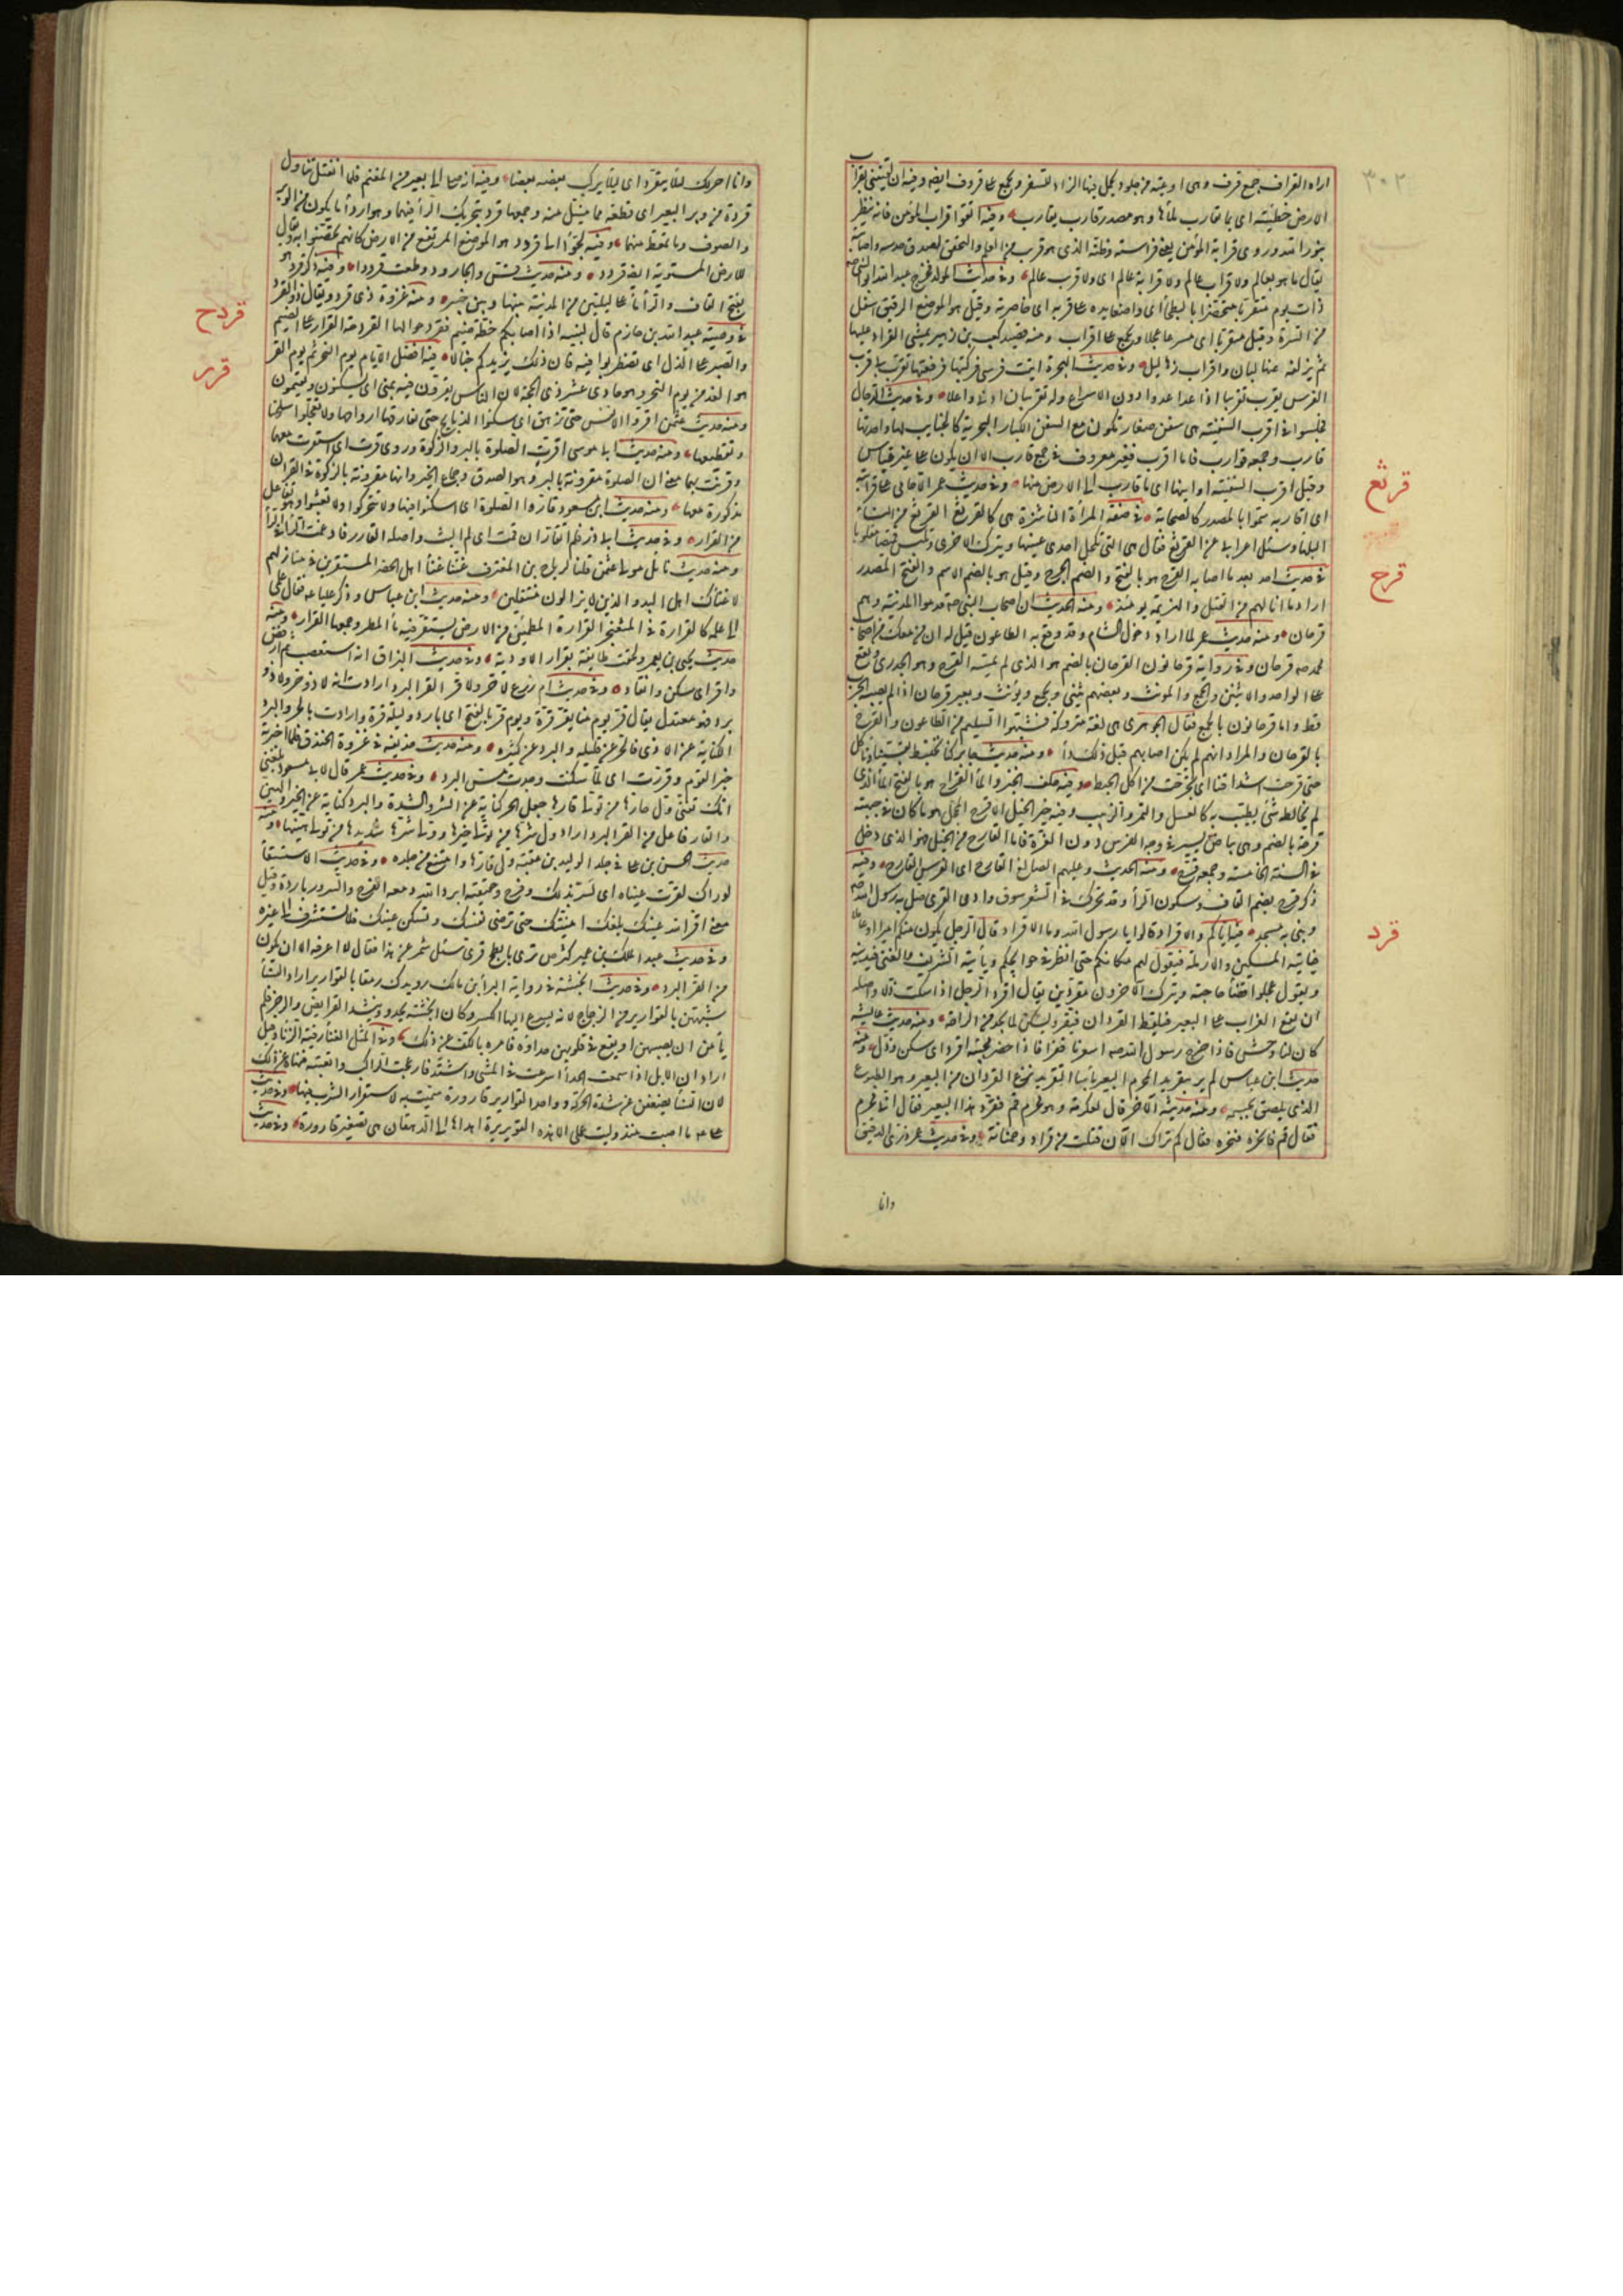 ٣٠٢
اراه القراف جمع قرف وهى اوعية من جلود يحمل فيها الزاد للسفر ويجمع على قروف ايضا وفيه ان لقيتنى بقراب
الارض خطيئة اى بما يقارب ملأها وهو مصدر قارب يقارب وفيه اتقوا قراب المؤمن فانه ينظر
بنور الله وروى قرابة المؤمن يعنى فراسته وظنه الذى هو قريب من العلم والتحقق لصدق حدسه واصابته
يقال ما هو بعالم ولا قراب عالم ولا قرابة عالم اى ولا قريب عالم وفى حديث المولد فخرج عبد الله ابو النبى
ذات يوم متقربا متخصرا بالبطحا اى واضعا يده على قربه اى خاصرته وقيل هو الموضع الرقيق اسفل
من السرة وقيل متقربا اى مسرعا عجلا ويجمع على اقراب ومنه قصيد كعب بن زهير يمشى القراد عليها
ثم يزلقه عنها لبان واقراب زهاليل وفى حديث الهجرة اتيت فرسى فركبتها فرفعتها تقرب بى قرب
الفرس يقرب تقريبا اذا عدا عدوا دون الاسراع وله تقريبان ادنى واعلا وفى حديث الدجال
فجلسوا فى اقرب السفينة هى سفن صغار تكون مع السفن الكبار البحرية كالجنايب لها واحدتها
قارب وجمعه قوارب فاما اقرب فغير معروف فى جمع قارب الا ان يكون على غير قياس
وقيل اقرب السفينة ادانيها اى ما قارب الى الارض منها وفى حديث عمر الا حامى على قرابته
اى اقاربه سموا بالمصدر كالصحابة فى صفة المرأة الناشزة هى كالقرثع القرثع من النساء
البلها وسئل اعرابى عن القرثع فقال هى التى تكحل احدى عينيها وتترك الاخرى وتلبس قميصها مقلوبا
فى حديث احد بعد ما اصابه القرح هو بالفتح والضم الجرح وقيل هو بالضم الاسم وبالفتح المصدر
اراد ما نالهم من القتل والهزيمة يومئذ ومنه الحديث ان اصحاب النبى قدموا المدينة وهم
قرحان ومنه حديث عمر لما اراد دخول الشام وقد وقع به الطاعون قيل له ان من معك من اصحاب
محمد قرحان وفى رواية قرحانون القرحان بالضم هو الذى لم يمسه القرح وهو الجدرى ويقع
على الواحد والاثنين والجمع والمونث وبعضهم يثنى ويجمع ويؤنث وبعير قرحان اذا لم يصبه الجرب
قط واما قرحانون بالجمع فقال الجوهرى هى لغة متروكة فشبهوا السليم من الطاعون والقرح
بالقرحان والمراد انهم لم يكن اصابهم قبل ذلك داء ومنه حديث جابر كنا نختبط بقسينا ونأكل
حتى قرحت اشداقنا اى تجرحت من اكل الخبط وفيه جلف الخبز والماء القراح هو بالفتح الماء الذى
لم يخالطه شئ يطيب به كالعسل والتمر والزبيب وفيه خير الخيل الاقرح المحجل هو ما كان فى جبهته
قرحة بالضم وهى بياض يسير فى وجه الفرس دون الغرة فاما القارح من الخيل فهو الذى دخل
فى السنة الخامسة وجمعه قرح ومنه الحديث وعليهم الصالغ القارح اى الفرس القارح وفيه
ذكر قرح بضم القاف وسكون الراء وقد تحرك فى الشعر سوق وادى القرى صلى به رسول الله
وبنى به مسجد فيه اياكم والاقراد قالوا يا رسول الله وما الاقراد قال الرجل يكون منكم اميرا او عاملا
فيأتيه المسكين والارملة فيقول لهم مكانكم حتى انظر فى حوايجكم ويأتيه الشريف الغنى فيدنيه
ويقول عجلوا قضاء حاجته وتترك الآخرون مقردين يقال اقرد الرجل اذا سكت ذلا واصله
ان يقع الغراب على البعير فيلقط القردان فيقر ويسكن لما يجد من الراحة ومنه حديث عايشة
كان لنا وحش فاذا خرج رسول الله اسعرنا قفزا فاذا حضر مجيئه اقرد اى سكن وذل ومنه
حديث ابن عباس لم ير بتقريد المحرم البعير بأسا التقريد نزع القردان من البعير وهو الطبوع
الذى يلصق بجسمه ومنه حديثه الآخر قال لعكرمة وهو محرم قم فقرد هذا البعير فقال انى محرم
فقال قم فانحره فنحره فقال كم تراك الآن قتلت من قراد وحمنانة وفى حديث عمر ذرى الدقيق
وانا
قرثع
قرح
قرد
وانا احرك لئلا يتقرد اى لئلا يركب بعضه بعضا وفيه انه صلى الى بعير من المغنم فلما انفتل تناول
قردة من وبر البعير اى قطعة مما ينسل منه وجمعها قرد بتحريك الراء فيهما وهو اردأ ما يكون من الوبر
والصوف وما تمعط منهما وفيه لجئوا الى قردد هو الموضع المرتفع من الارض كانهم تحصنوا به ويقال
للارض المستوية ايضا قردد ومنه حديث قس والجارود وقطعت قرددا وفيه ذكر ذى قرد هو
بفتح القاف والراء ماء على ليلتين من المدينة بينها وبين خيبر ومنه غزوة ذى قرد ويقال ذو القرد
فى وصية عبد الله بن حازم قال لبنيه اذا اصابتكم خطة ضيم فقردحوا لها القردحة القرار على الضيم
والصبر على الذل اى تضطربوا فيه فان ذلك يزيدكم خبالا فيه افضل الايام يوم النحر ثم يوم القر
هو الغد من يوم النحر وهو حادى عشر ذى الحجة لان الناس يقرون فيه بمنى اى يسكنون ويقيمون
ومنه حديث عثمن اقروا الانفس حتى تزهق اى سكنوا الذبايح حتى تفارقها ارواحها ولا تعجلوا سلخها
وتقطيعها ومنه حديث ابى موسى اقرت الصلوة بالبر والزكوة وروى قرت اى استقرت معهما
وقرنت بهما يعنى ان الصلوة مقرونة بالبر وهو الصدق وجماع الخير وانها مقرونة بالزكوة فى القران
مذكورة معها ومنه حديث ابن مسعود قاروا الصلوة اى اسكنوا فيها ولا تتحركوا ولا تعبثوا وهو تفاعل
من القرار وفى حديث ابى ذر فلم اتقار ان قمت اى لم البث واصله اتقارر فادغمت الراء فى الراء
ومنه حديث نائل مولى عثمن قلنا لرباح بن المغترف غننا غناء اهل الحضر المستقرين فى منازلهم
لا غناء اهل البدو الذين لا يزالون منتقلين ومنه حديث ابن عباس وذكر عليا فقال علمى
الى علمه كالقرارة فى المثعنجر القرارة المطمئن من الارض يستقر فيه ماء المطر وجمعها القرار ومنه
حديث يحيى بن يعمر ولحقت طايفة بقرار الاودية وفى حديث البراق انه استصعب ثم ارفض
واقر اى سكن وانقاد وفى حديث ام زرع لا حر ولا قر القر البرد ارادت انه لا ذو حر ولا ذو
برد فهو معتدل يقال قر يومنا يقر قرة ويوم قر بالفتح اى بارد وليلة قرة وارادت بالحر والبرد
الكناية عن الاذى فالحر عن قليله والبرد عن كثيره ومنه حديث حذيفة فى غزوة الخندق فلما اخبرته
خبر القوم وقررت قررت اى لما سكنت وجدت مس البرد وفى حديث عمر قال لابى مسعود بلغنى
انك تفتى ول حارها من تولى قارها جعل الحر كناية عن الشر والشدة والبرد كناية عن الخير والهين
والقار فاعل من القر البرد اراد ول شرها من تولى خيرها وول شديدها من تولى هينها ومنه
حديث الحسن بن على فى جلد الوليد بن عقبة ول حارها من تولى قارها وامتنع من جلده وفى حديث الاستسقا
لو راك لقرت عيناه اى لسر بذلك وفرح وحقيقته ابرد الله دمعه الفرح والسرور باردة وقيل
معنى اقر الله عينك بلغك امنيتك حتى ترضى نفسك وتسكن عينك فلا تستشرف الى غيره
وفى حديث عبد الملك بن عمير لقرص برى بابطح قرى سئل شمر عن هذا فقال لا اعرفه الا ان يكون
من القر البرد وفى حديث انجشة فى رواية البرأ بن مالك رويدك رفقا بالقوارير اراد النساء
شبههن بالقوارير من الزجاج لانه يسرع اليها الكسر وكان انجشة يحدو وينشد القريض والرجز فلم
يأمن ان يصيبهن او يقع فى قلوبهن حداؤه فامره بالكف عن ذلك وفى المثل الغناء رقية الزنا وقيل
اراد ان الابل اذا سمعت الحداء اسرعت فى المشى واشتدت فازعجت الراكب واتعبته فنهاه عن ذلك
لان النساء يضعفن عن شدة الحركة وواحد القوارير قارورة سميت به لاستقرار الشراب فيها وفى حديث
على ما اصبت منذ وليت عملى الا هذه القويريرة اهداها الى الدهقان هى تصغير قارورة وفى حديث
قردح
قرر